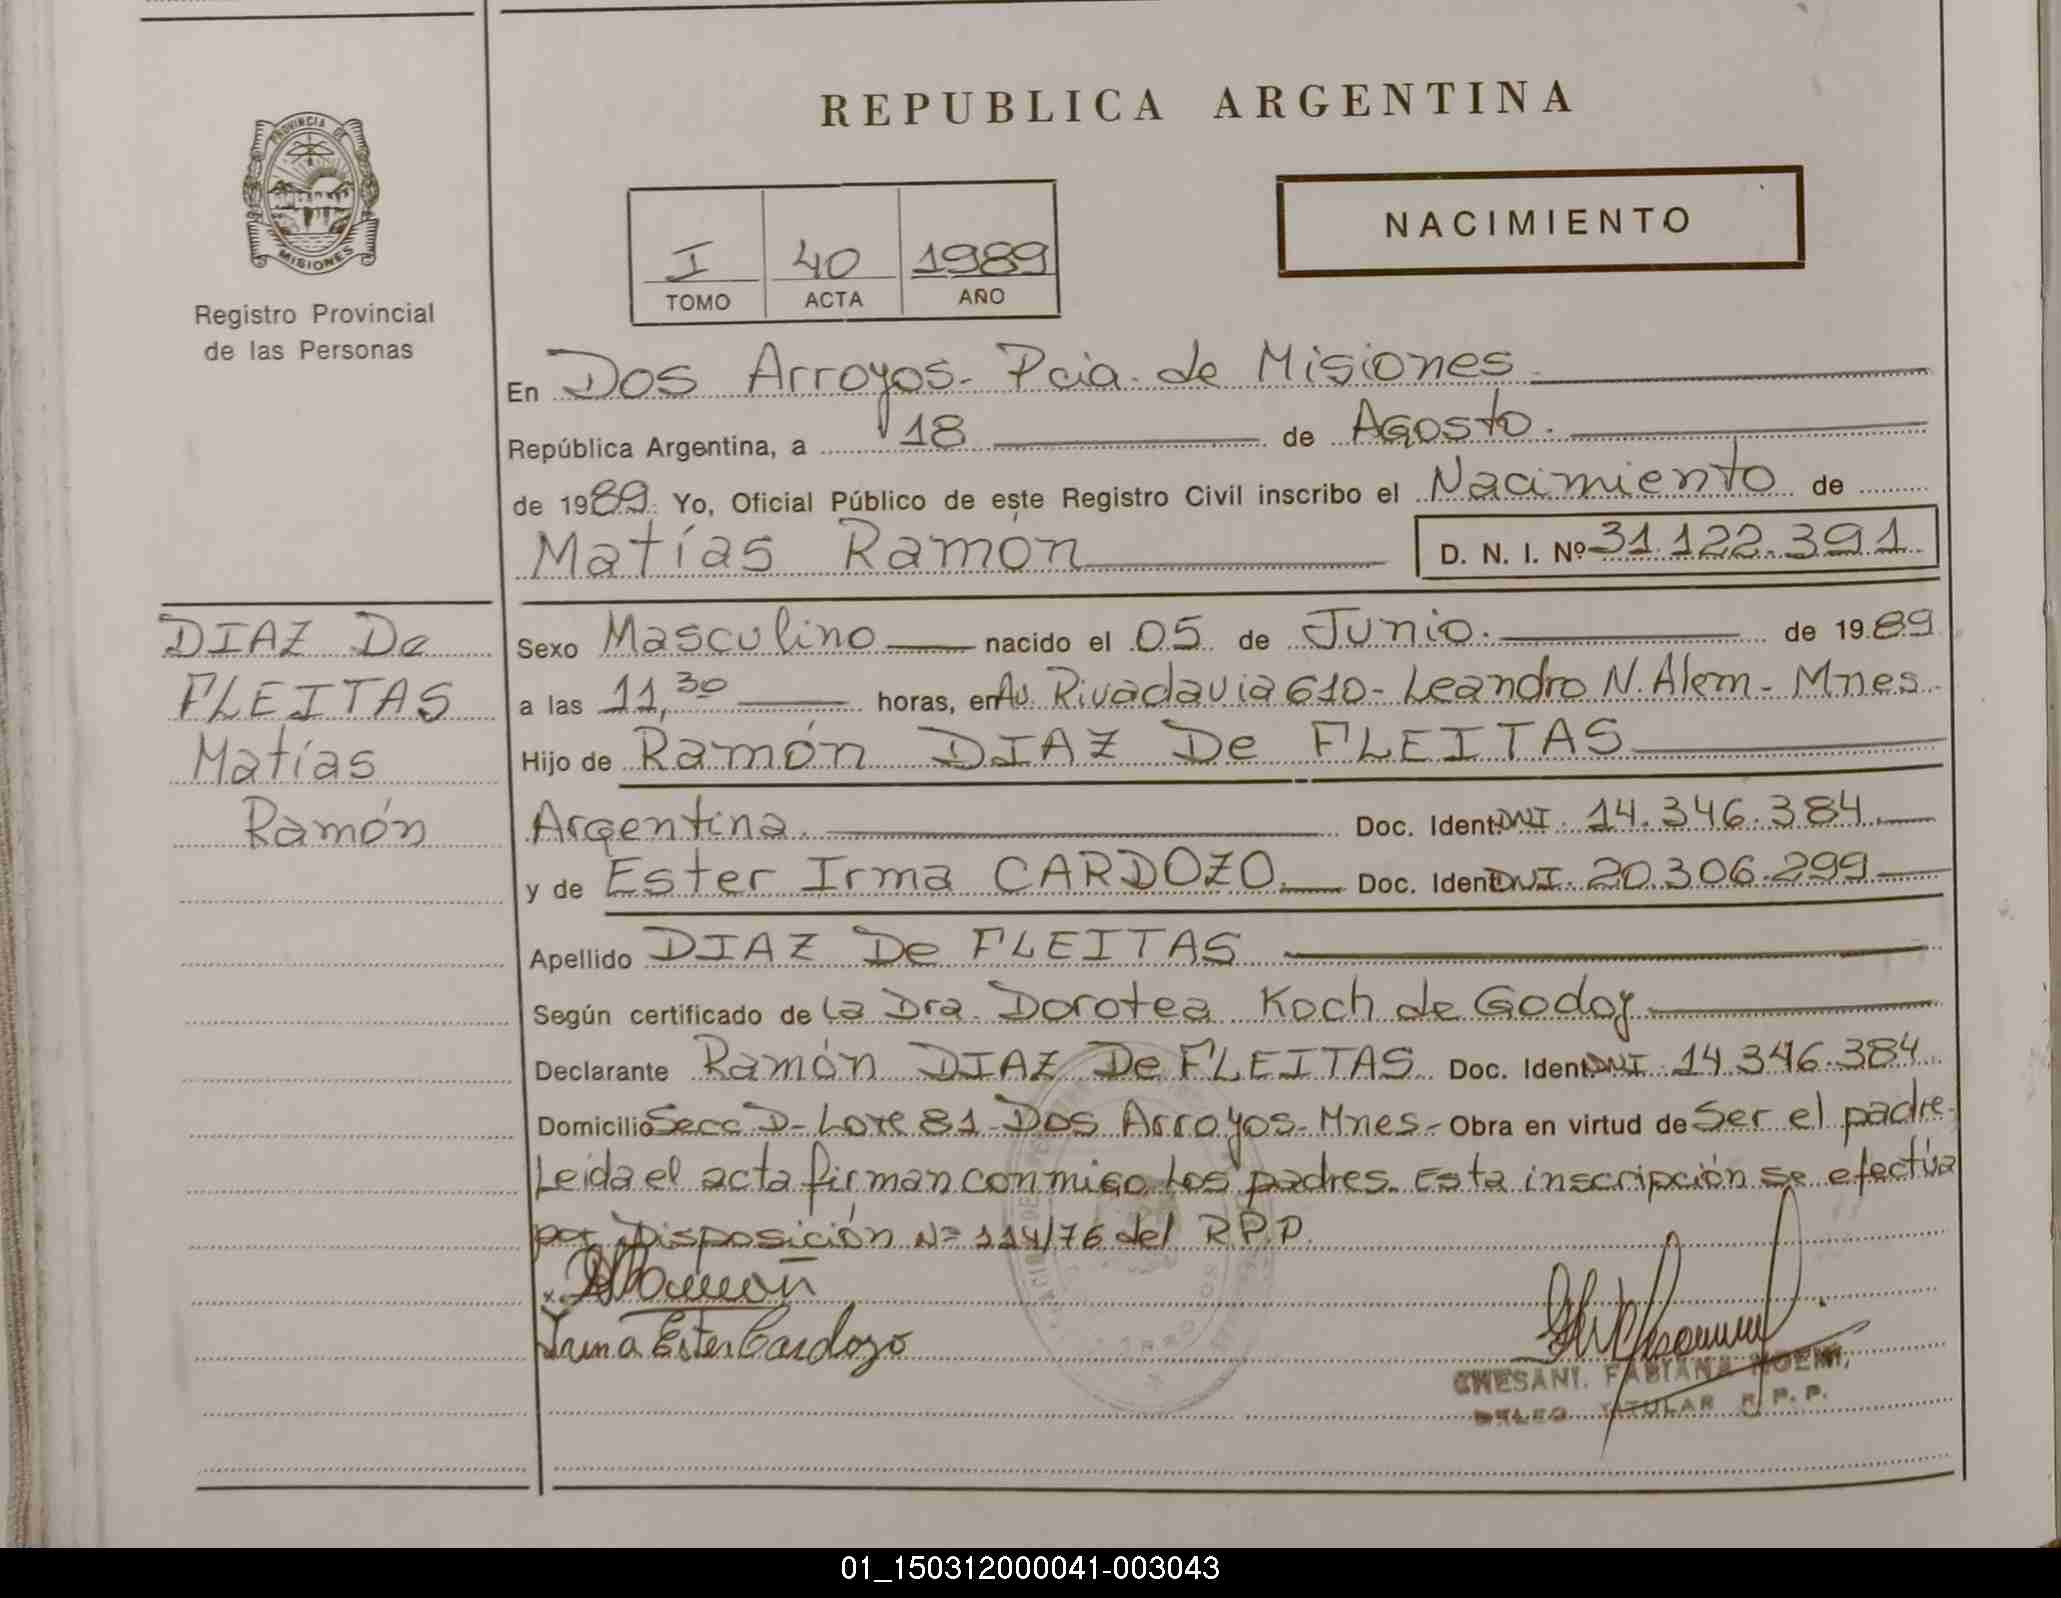 REPUBLICA ARGENTINA
PROVINCIA DE
MISIONES
Registro Provincial
de las Personas
NACIMIENTO
I 40 1989
TOMO ACTA AÑO
En Dos Arroyos- Pcia. de Misiones.
República Argentina, a 18 de Agosto.
de 1989. Yo, Oficial Público de este Registro Civil inscribo el Nacimiento de
Matías Ramón D. N. I. Nº 31.122.391
DIAZ De
FLEITAS
Matías
Ramón
Sexo Masculino nacido el 05 de Junio. de 1989
a las 11,30 horas, en Av. Rivadavia 610- Leandro N. Alem- Mnes.
Hijo de Ramón DIAZ De FLEITAS
Argentina. Doc. Ident. DNI. 14.346.384.
y de Ester Irma CARDOZO. Doc. Ident. DNI. 20.306.299
Apellido DIAZ De FLEITAS
Según certificado de La Dra. Dorotea Koch de Godoy
Declarante Ramón DIAZ De FLEITAS. Doc. Ident. DNI. 14.346.384.
Domicilio Secc D- Lote 81- Dos Arroyos- Mnes.- Obra en virtud de Ser el padre-
Leída el acta firman conmigo los padres. Esta inscripción se efectúa
por Disposición Nº 114/76 del R.P.P.
Irma Ester Cardozo
CHESANI, FABIANA NOEMI,
DELEG. TITULAR R. P. P.
01_150312000041-003043